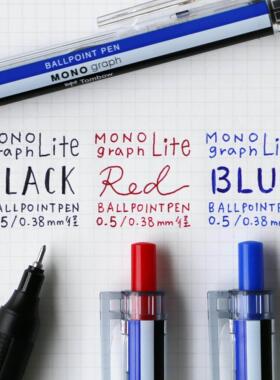 BALLPOINT PEN
MONO graph
Tombow
MONO
graph Lite
BLACK
BALLPOINTPEN
0.5/0.38mm
MONO
graph Lite
Red
BALLPOINTPEN
0.5/0.38mm
MONO
graph Lite
BLU
BALLPOINTPEN
0.5/0.38mm